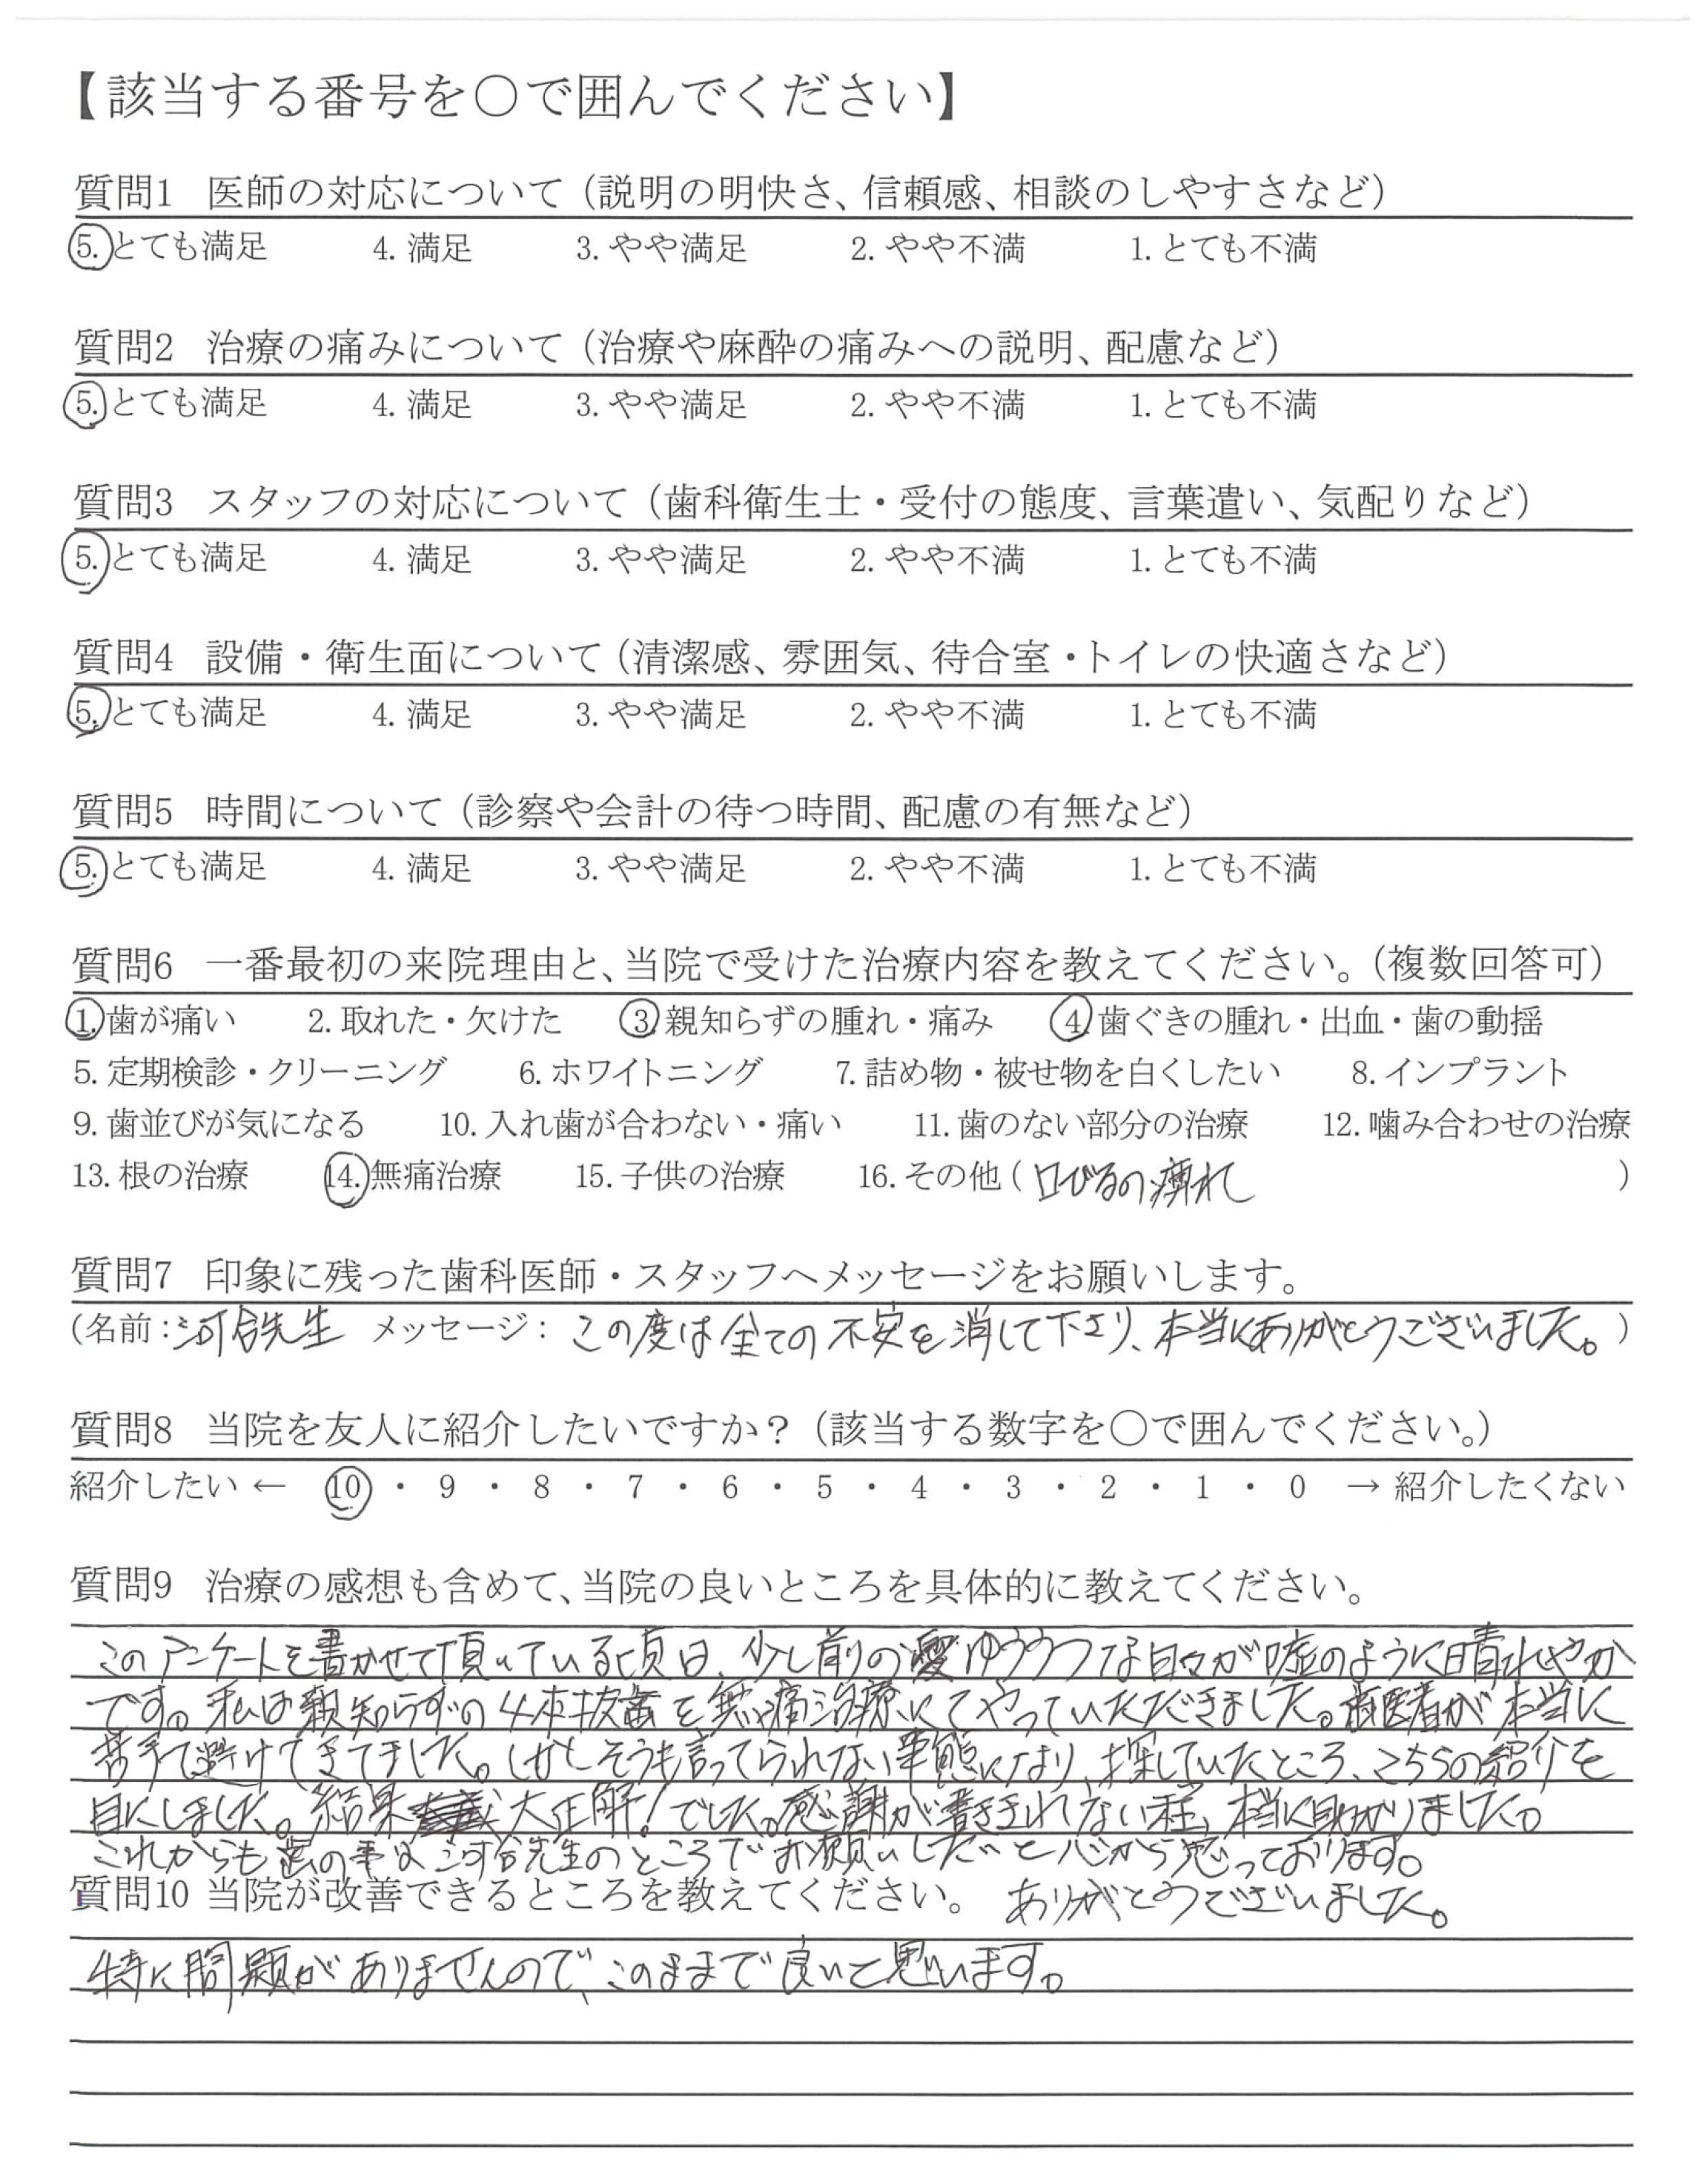 【該当する番号を〇で囲んでください】
質問1 医師の対応について（説明の明快さ、信頼感、相談のしやすさなど）
5. とても満足 4. 満足 3. やや満足 2. やや不満 1. とても不満
質問2 治療の痛みについて（治療や麻酔の痛みへの説明、配慮など）
5. とても満足 4. 満足 3. やや満足 2. やや不満 1. とても不満
質問3 スタッフの対応について（歯科衛生士・受付の態度、言葉遣い、気配りなど）
5. とても満足 4. 満足 3. やや満足 2. やや不満 1. とても不満
質問4 設備・衛生面について（清潔感、雰囲気、待合室・トイレの快適さなど）
5. とても満足 4. 満足 3. やや満足 2. やや不満 1. とても不満
質問5 時間について（診察や会計の待つ時間、配慮の有無など）
5. とても満足 4. 満足 3. やや満足 2. やや不満 1. とても不満
質問6 一番最初の来院理由と、当院で受けた治療内容を教えてください。（複数回答可）
1. 歯が痛い 2. 取れた・欠けた 3. 親知らずの腫れ・痛み 4. 歯ぐきの腫れ・出血・歯の動揺
5. 定期検診・クリーニング 6. ホワイトニング 7. 詰め物・被せ物を白くしたい 8. インプラント
9. 歯並びが気になる 10. 入れ歯が合わない・痛い 11. 歯のない部分の治療 12. 噛み合わせの治療
13. 根の治療 14. 無痛治療 15. 子供の治療 16. その他（口びるの痺れ）
質問7 印象に残った歯科医師・スタッフへメッセージをお願いします。
（名前：河合先生 メッセージ：この度は全ての不安を消して下さり、本当にありがとうございました。）
質問8 当院を友人に紹介したいですか？（該当する数字を〇で囲んでください。）
紹介したい ← 10 ・ 9 ・ 8 ・ 7 ・ 6 ・ 5 ・ 4 ・ 3 ・ 2 ・ 1 ・ 0 → 紹介したくない
質問9 治療の感想も含めて、当院の良いところを具体的に教えてください。
このアンケートを書かせて頂いている頃は、少し前のゆううつな日々が嘘のように晴れやか
です。私は親知らずの4本抜歯を無痛治療にてやっていただきました。歯医者が本当に
苦手で避けてきてました。しかしそうも言ってられない事態になり、探していたところ、こちらの紹介を
目にしました。結果大正解！でした。感謝が書ききれない程、本当に助かりました。
これからも歯の事は河合先生のところでお願いしたいと心から思っております。
ありがとうございました。
質問10 当院が改善できるところを教えてください。
特に問題がありませんので、このままで良いと思います。